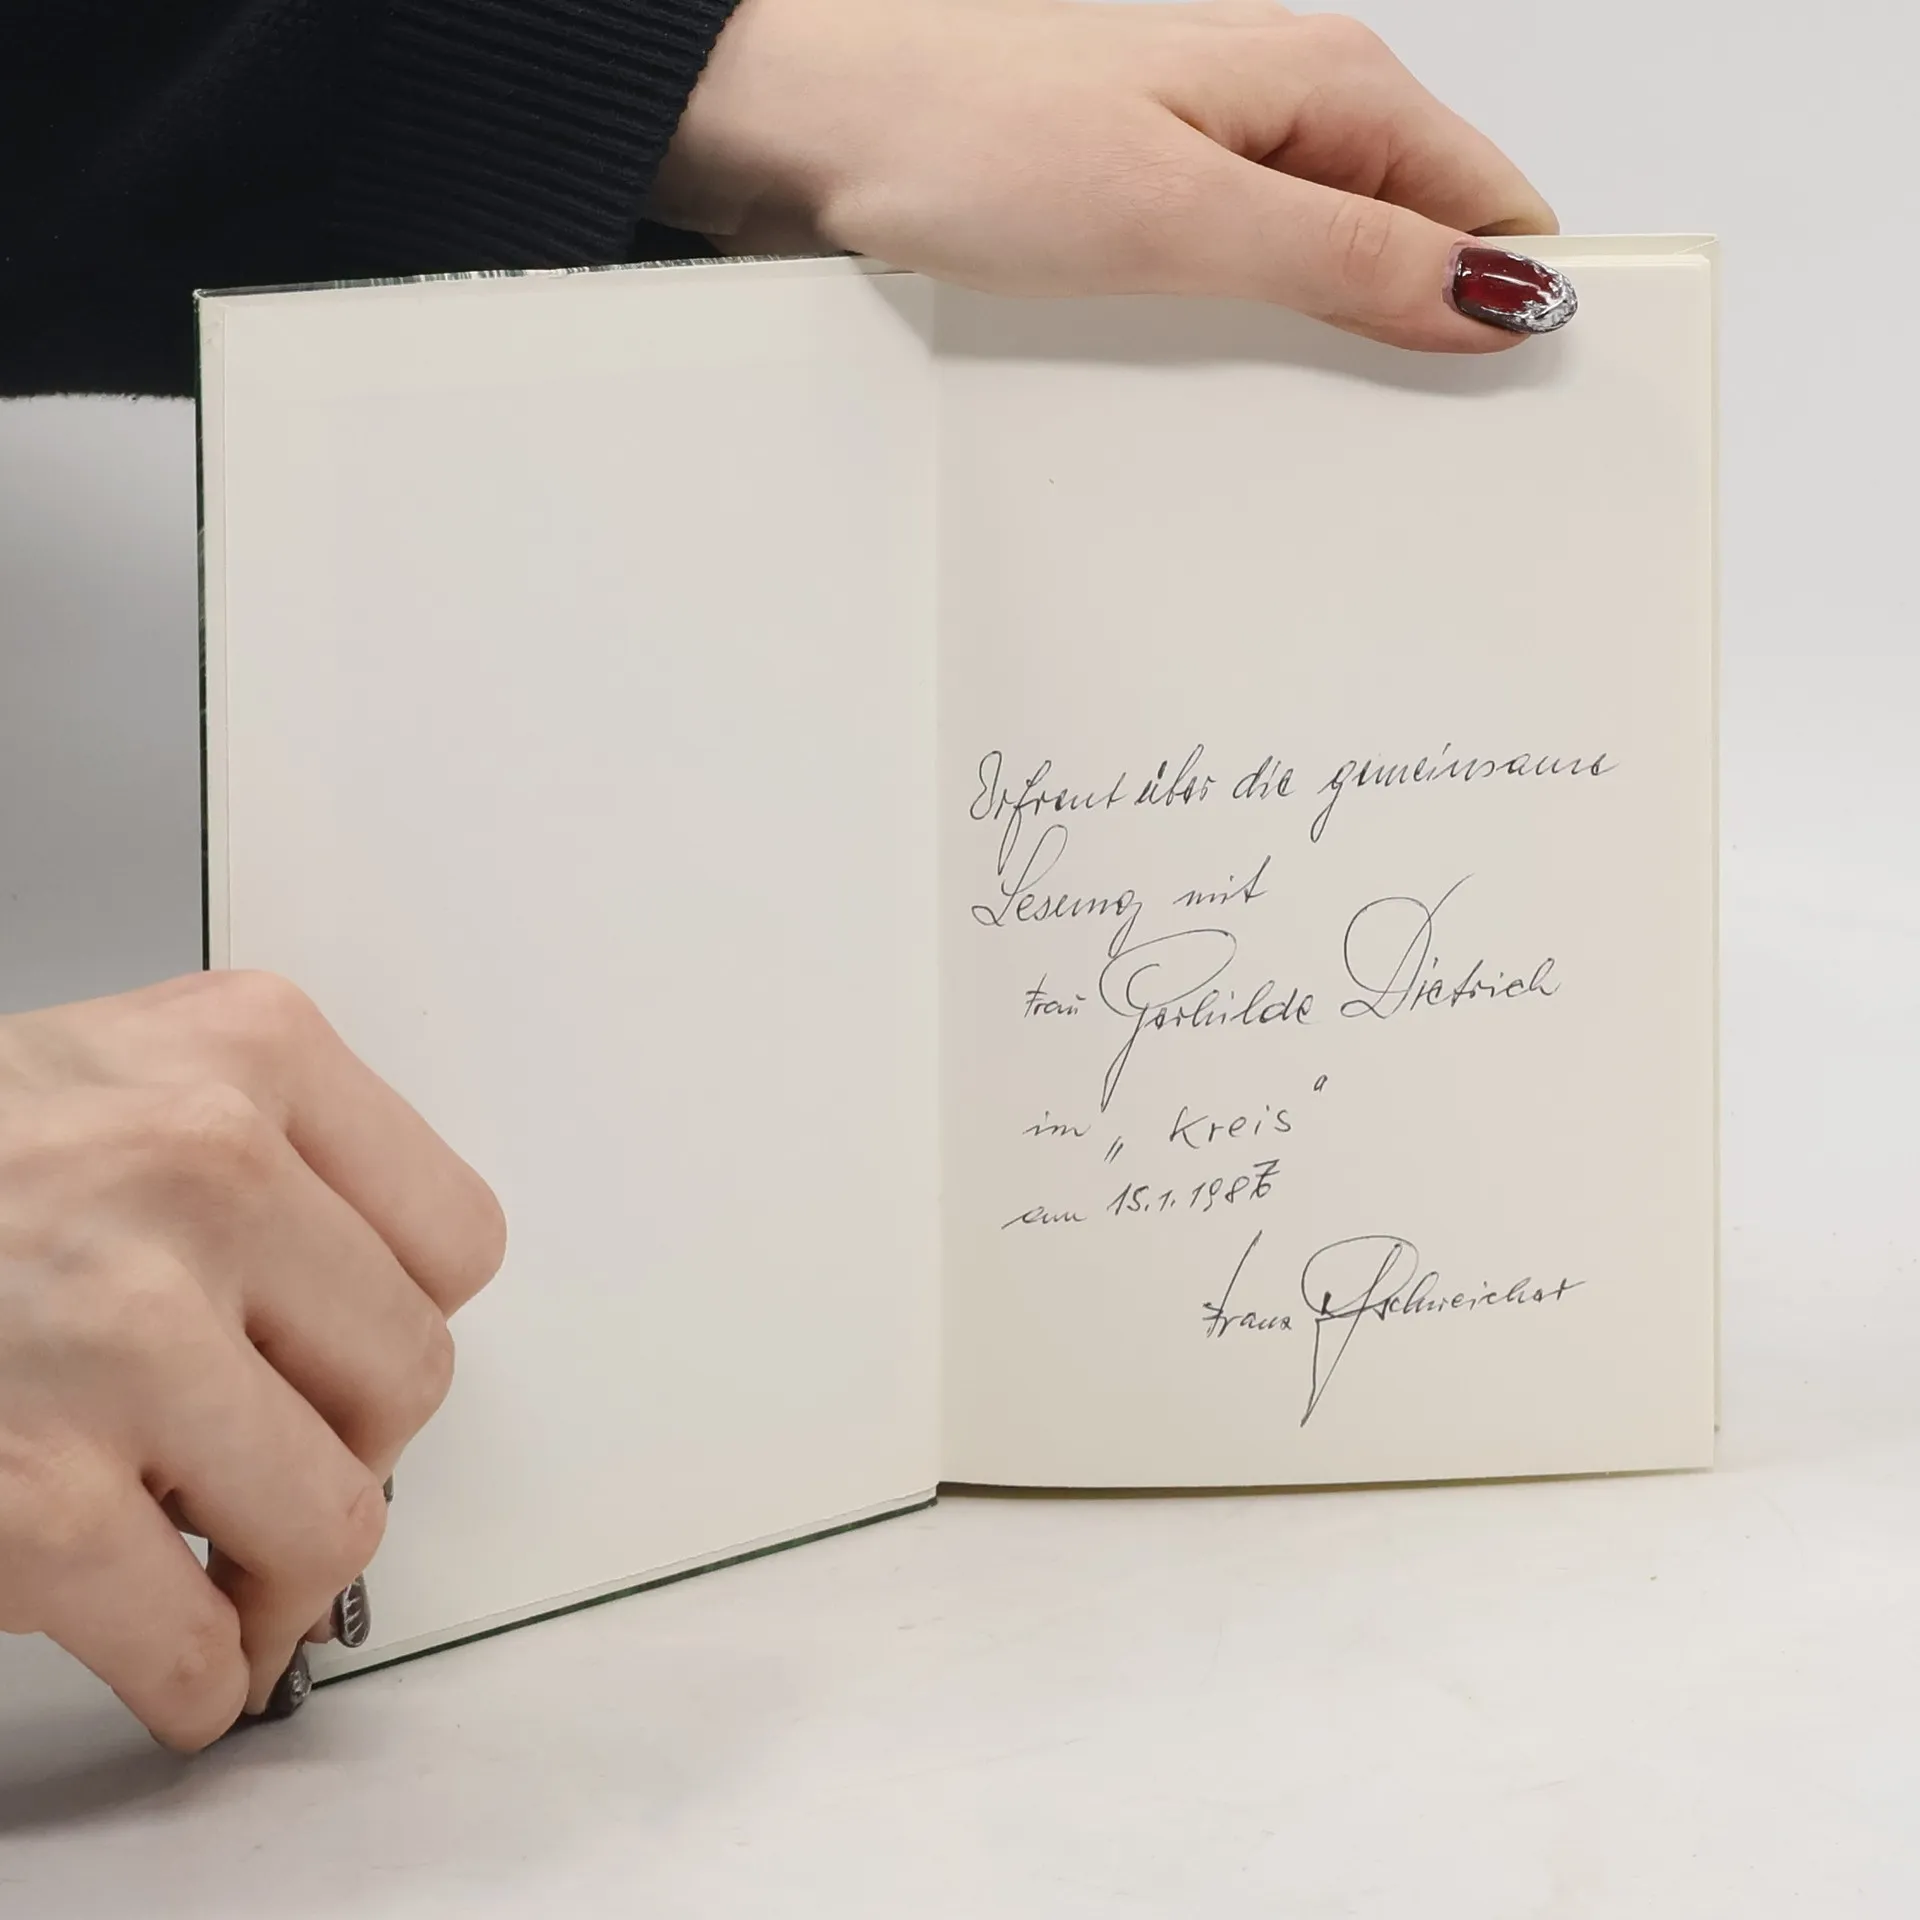 Erfreut über die gemeinsame
Lesung mit
Frau Gerhilde Dietrich
im „Kreis“
am 15.1.1987
Franz